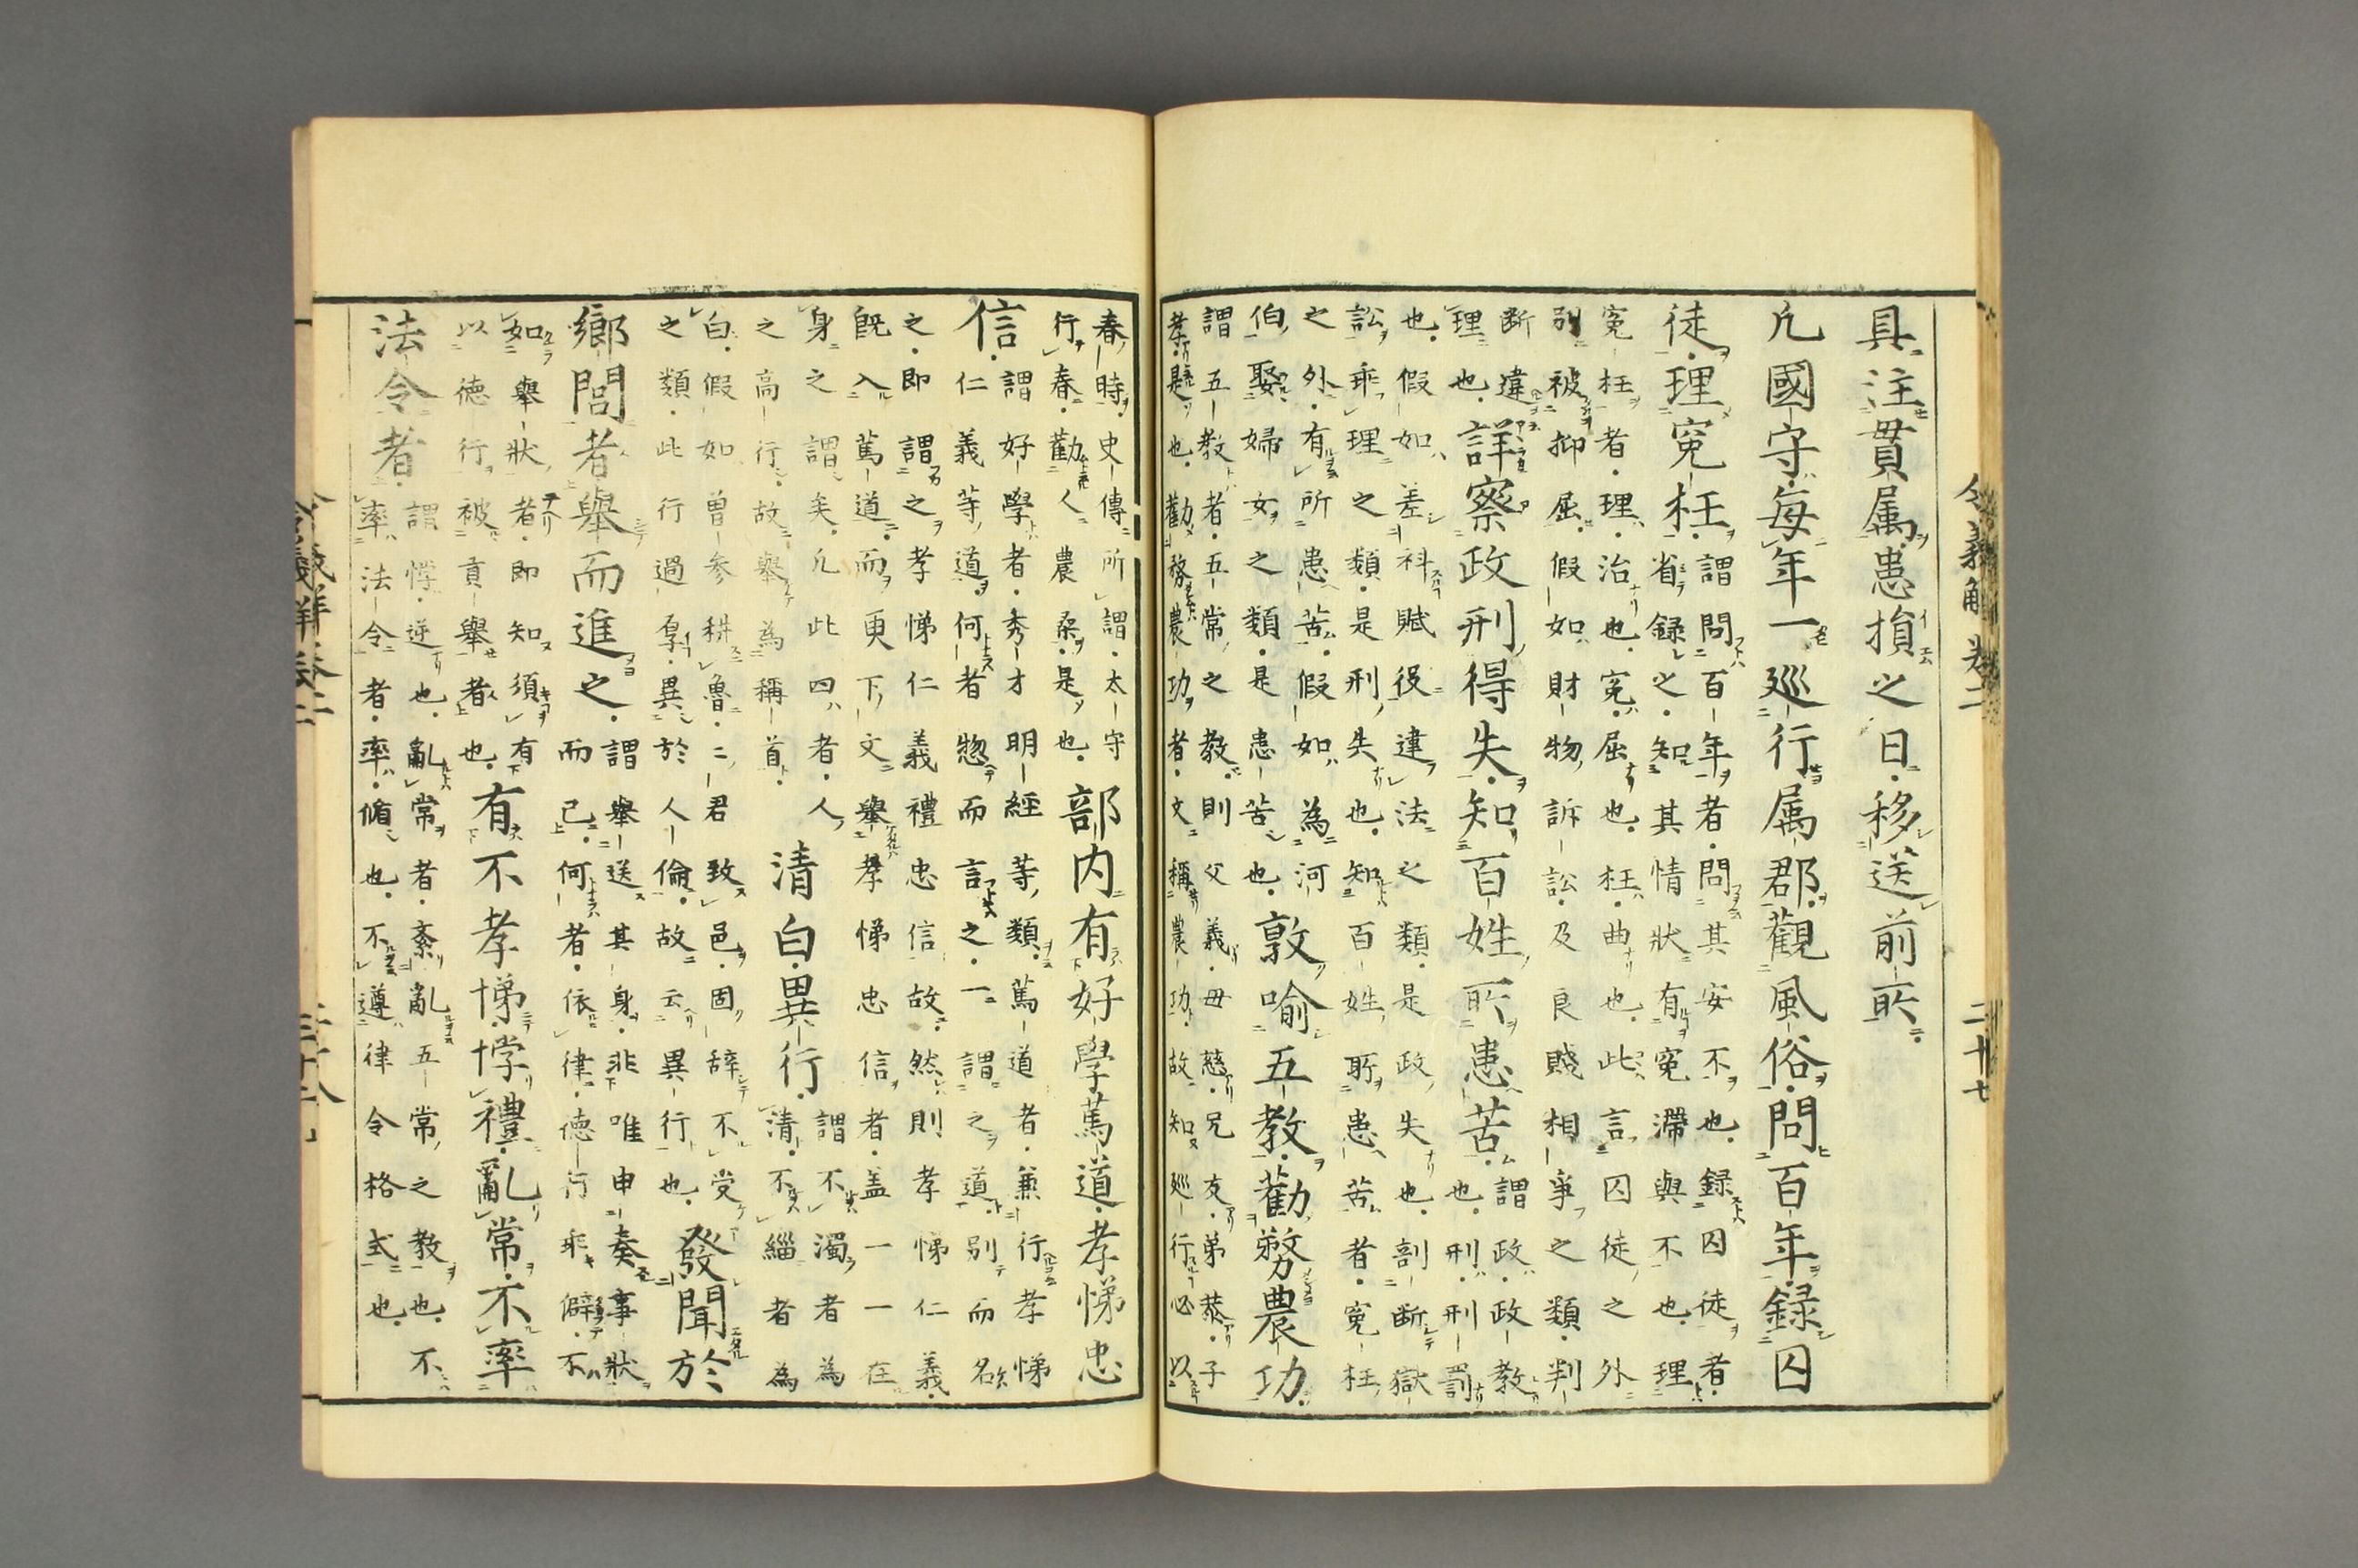 令義解 卷二 二十七
具注貫属患損之日移送前所
凡國守毎年一巡行属郡觀風俗問百年録囚
徒理寃枉
謂問百年者問其安不也録囚徒者
省録之知其情狀有寃滯與不也理
寃枉者理治也寃屈也枉曲也此言囚徒之外
別被抑屈假如財物訴訟及良賤相爭之類判
断違
理也
詳察政刑得失知百姓所患苦
謂政政教
也刑刑罰
也假如差科賦役違法之類是政失也剖断獄
訟乖理之類是刑失也知百姓所患苦者寃枉
之外有所患苦假如為河
伯娶婦女之類是患苦也
敦喻五教勸務農功
謂五教者五常之教則父義母慈兄友弟恭子
孝是也勸務農功者文稱農功故知巡行必以
春時史傳所謂太守
行春勸人農桑是也
部内有好學篤道孝悌忠
信
謂好學者秀才明經等類篤道者兼行孝悌
仁義等道何者惣而言之一謂之道別而名
之即謂之孝悌仁義禮忠信故然則孝悌仁義
既入篤道而更下文舉孝悌忠信者盖一一在
身之謂矣凡此四者人
之高行故舉為稱首
清白異行
謂不濁者為
清不緇者為
白假如曽參耕魯二君致邑固辞不受
之類此行過厚異於人倫故云異行也
發聞於
鄉閭者舉而進之
謂舉送其身非唯申奏事狀
而已何者依律德行乖僻不
如舉狀者即知須有
以德行被貢舉者也
有不孝悌悖禮亂常不率
法令者
謂悖逆也亂常者紊亂五常之教也不
率法令者率脩也不遵律令格式也